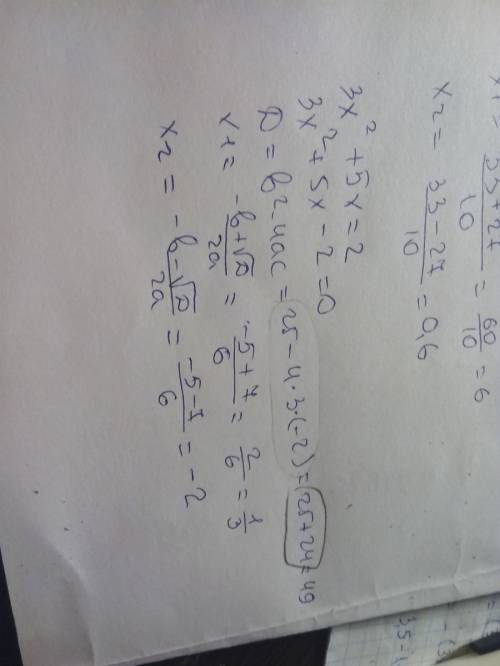 x1 = 33+27/10 = 60/10 = 6
x2 = 33-27/10 = 0,6
3x² + 5x = 2
3x² + 5x - 2 = 0
D = b² - 4ac = 25 - 4·3·(-2) = 25 + 24 = 49
x1 = -b+√D/2a = -5+7/6 = 2/6 = 1/3
x2 = -b-√D/2a = -5-7/6 = -2